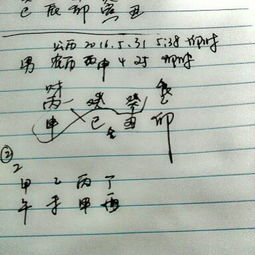 巳辰卯寅丑
公历 2016.5.31 5:38 卯时
男 农历 丙申 4 25 卯时
财
丙 癸 癸
申 巳 丑 卯
②
2
甲 乙 丙 丁
午 未 申 酉